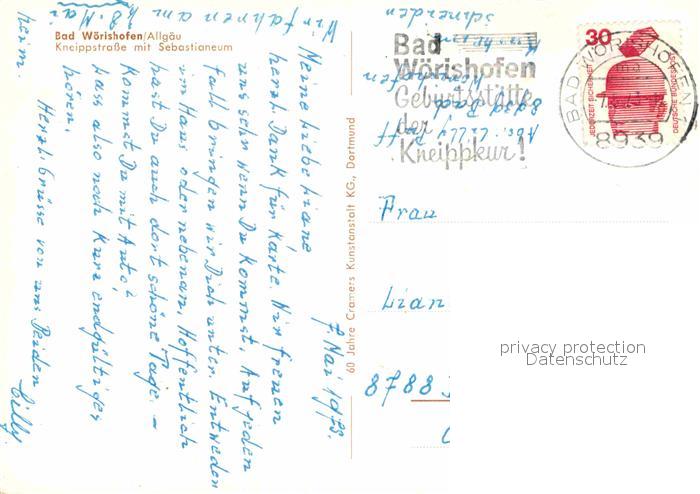 Bad Wörishofen/Allgäu
Kneippstraße mit Sebastianeum
7. Mai 1973.
Meine liebe Liane
herzl. Dank für Karte. Wir freuen
uns sehr wenn Du kommst. Auf jeden
fall bringen wir Dich unter. Entweder
im Haus oder nebenan. Hoffentlich
hast Du auch dort schöne Tage. –
Kommst Du mit Auto?
Lass also noch kurz endgültiges
hören.
Herzl. Grüsse von uns Beiden
Cilly
Wir fahren am 28. Mai
heim
60 Jahre Cramers Kunstanstalt KG., Dortmund
Bad
Wörishofen
Geburtsstätte
der
Kneippkur!
Abs: Cilly
8939 Bad
Wörishofen
30
JEDERZEIT SICHERHEIT
DEUTSCHE BUNDESPOST
BAD WÖRISHOFEN
8939
Frau
Lian
8788
privacy protection
Datenschutz